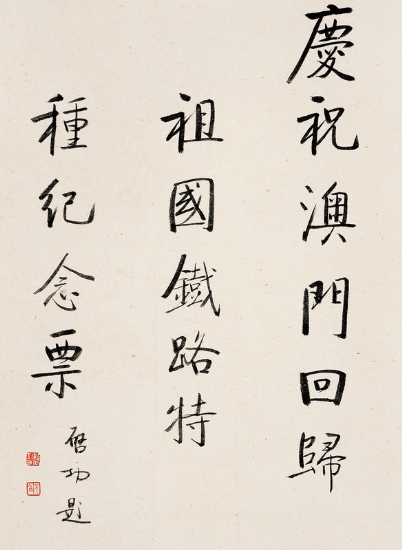 慶祝澳門回歸
祖國鐵路特
種紀念票
啓功題